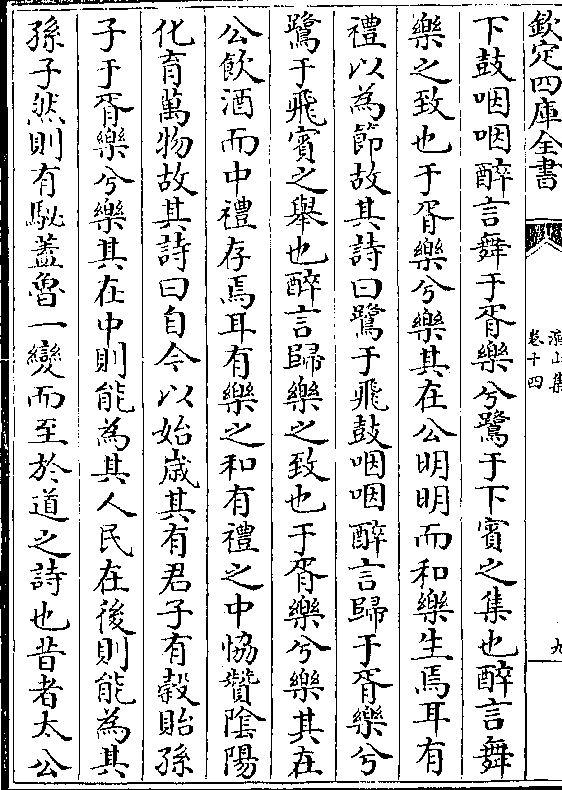 欽定四庫全書
演山集
卷十四
九
下鼓咽咽醉言舞于胥樂兮鷺于下賓之集也醉言舞
樂之致也于胥樂兮樂其在公明明而和樂生焉耳有
禮以為節故其詩曰鷺于飛鼓咽咽醉言歸于胥樂兮
鷺于飛賓之舉也醉言歸樂之致也于胥樂兮樂其在
公飲酒而中禮存焉耳有樂之和有禮之中恊贊隂陽
化育萬物故其詩曰自今以始歳其有君子有榖貽孫
子于胥樂兮樂其在中則能為其人民在後則能為其
孫子然則有駜蓋魯一變而至於道之詩也昔者太公